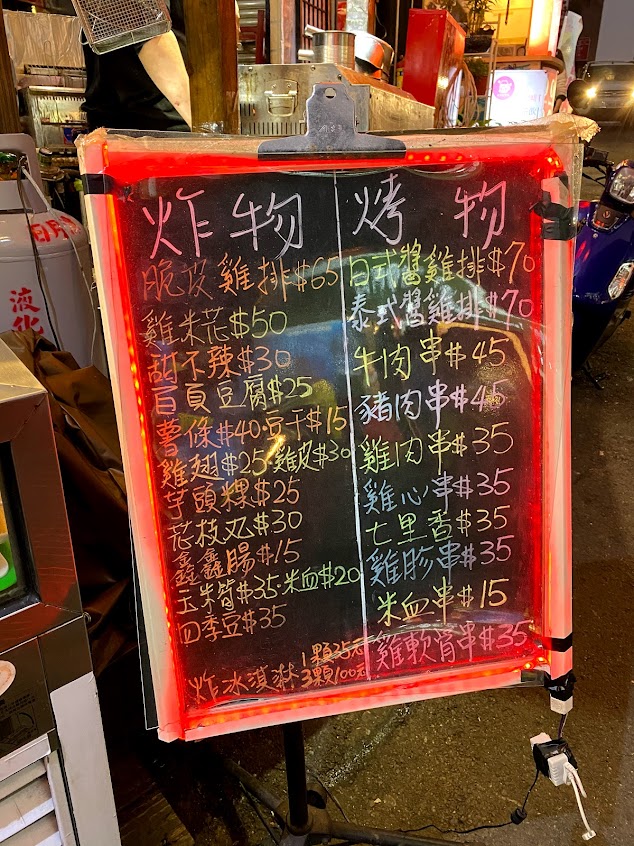 炸物
脆皮雞排$65
雞米花$50
甜不辣$30
百頁豆腐$25
薯條$40·豆干$15
雞翅$25·雞皮$30
芋頭粿$25
花枝丸$30
鑫鑫腸$15
玉米筍$35·米血$20
四季豆$35
炸冰淇淋 1顆35元
3顆100元
烤物
日式醬雞排$70
泰式醬雞排$70
牛肉串$45
豬肉串$45
雞肉串$35
雞心串$35
七里香$35
雞胗串$35
米血串$15
雞軟骨串$35
液化